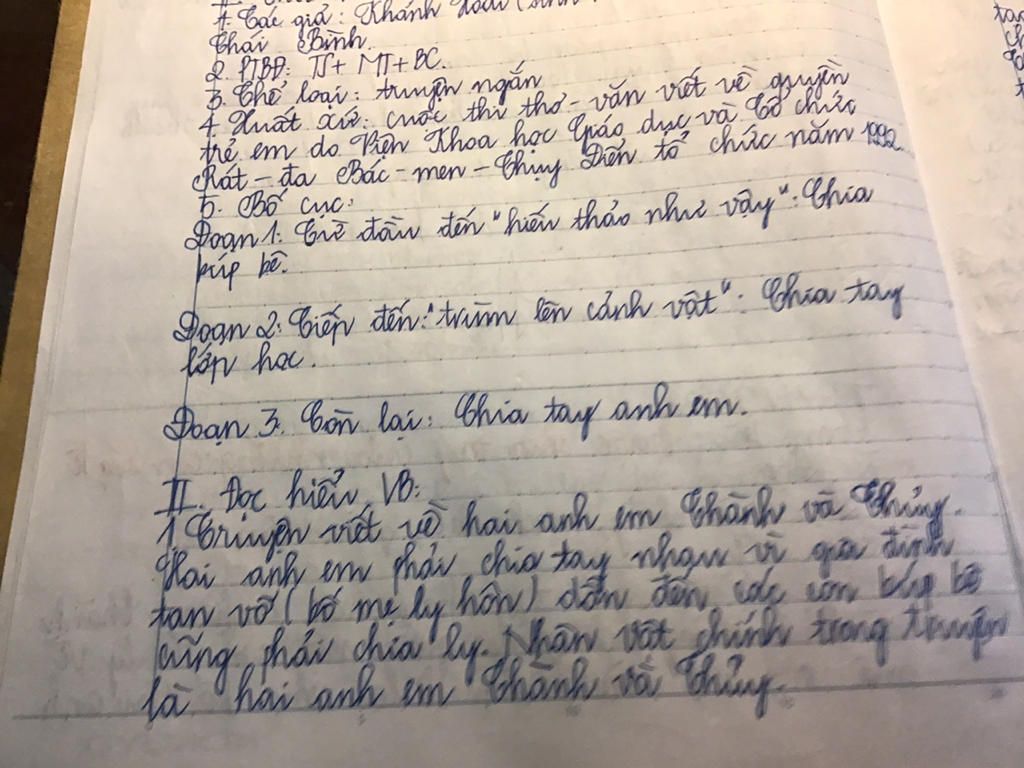 1. Tác giả: Khánh Hoài (sinh
Thái Bình.
2. PTBĐ: TS + MT + BC.
3. Thể loại: truyện ngắn
4. Xuất xứ: cuộc thi thơ - văn viết về quyền
trẻ em do Viện Khoa học Giáo dục và Tổ chức
Rát - đa Bác - men - Thụy Điển tổ chức năm 1992
5. Bố cục:
Đoạn 1: Từ đầu đến "hiếu thảo như vậy": Chia
búp bê.
Đoạn 2: Tiếp đến: "trùm lên cảnh vật": Chia tay
lớp học.
Đoạn 3: Còn lại: Chia tay anh em.
II. Đọc hiểu VB:
1 Truyện viết về hai anh em Thành và Thủy.
Hai anh em phải chia tay nhau vì gia đình
tan vỡ (bố mẹ ly hôn) dẫn đến các con búp bê
cũng phải chia ly. Nhân vật chính trong truyện
là hai anh em Thành và Thủy.